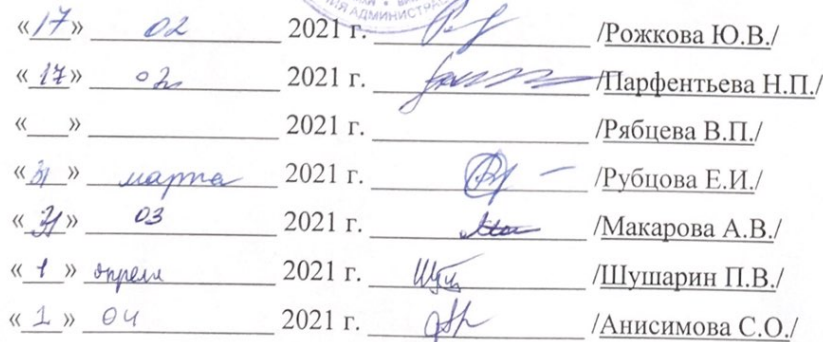 ИЯ АДМИНИСТРА
«17» 02 2021 г. /Рожкова Ю.В./
«17» 02 2021 г. /Парфентьева Н.П./
«___» 2021 г. /Рябцева В.П./
«31» марта 2021 г. /Рубцова Е.И./
«31» 03 2021 г. /Макарова А.В./
«1» апреля 2021 г. /Шушарин П.В./
«1» 04 2021 г. /Анисимова С.О./